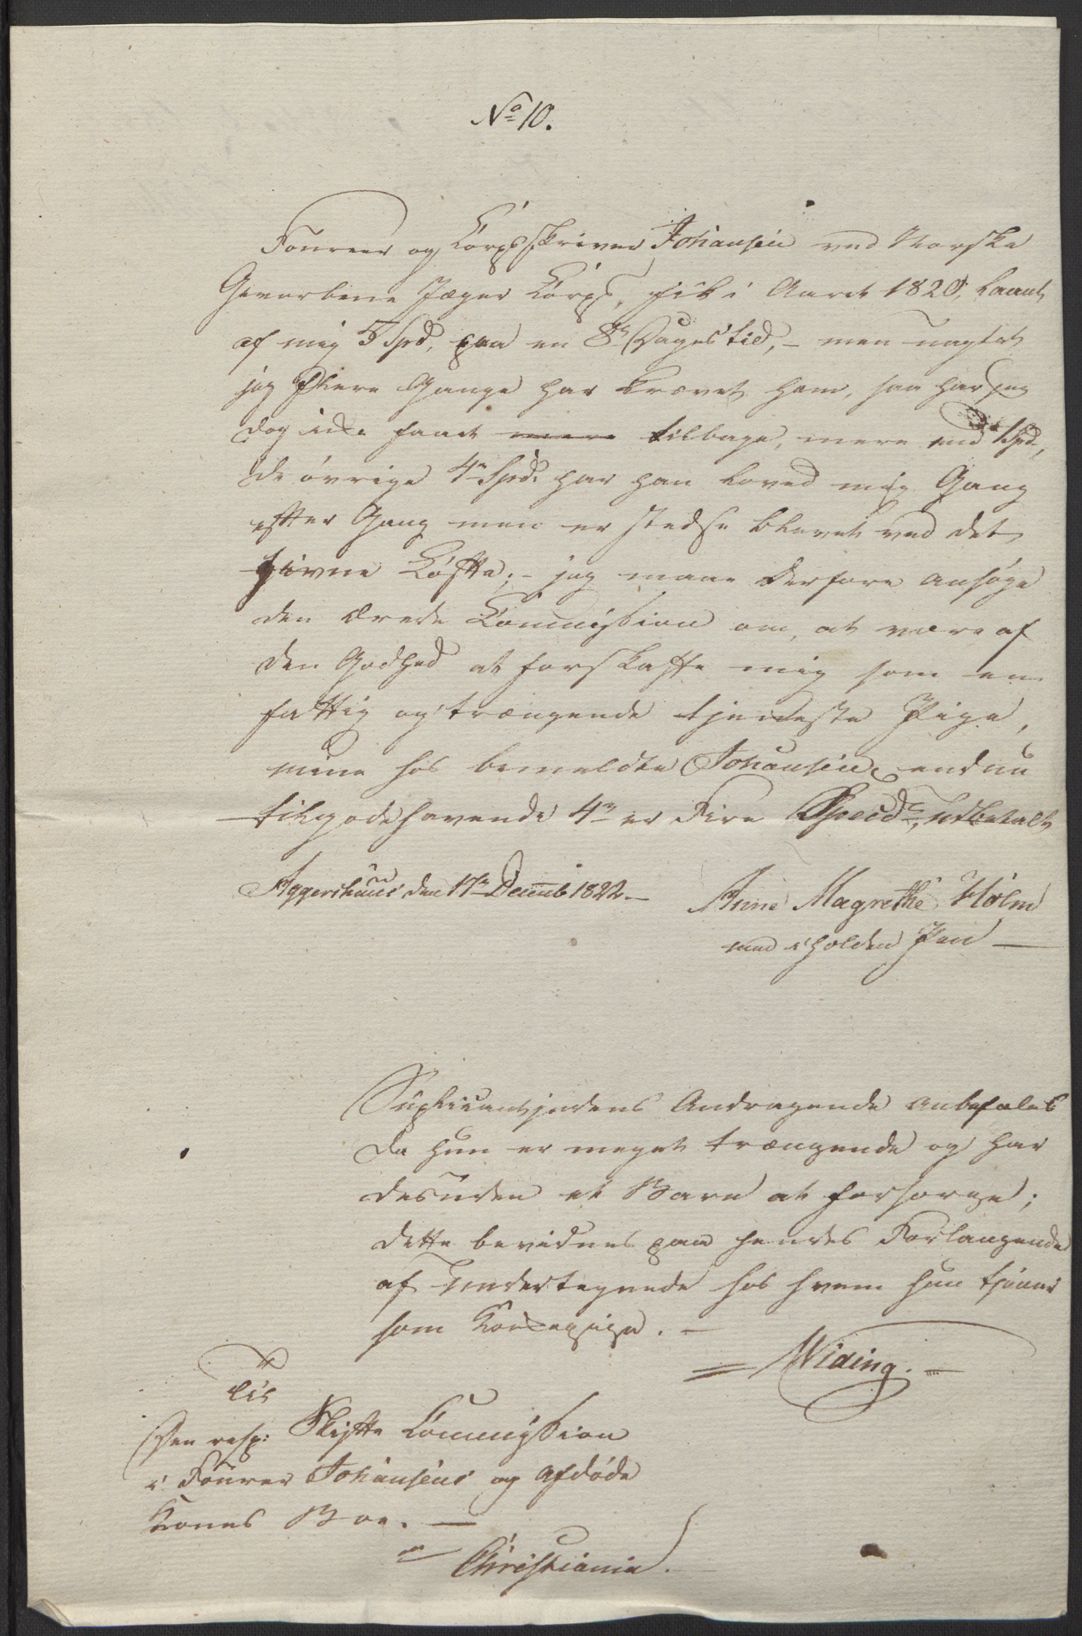 No 10.
Foureer og Corpsskriver Johansen ved Norske
Gevorbene Jæger Corps, fik i Aaret 1820, laant
af mig 5 Spd, paa en 8te Dages tid, - men uagtet
jeg flere Gange har krævet ham, saa har jeg
dog ikke faaet mere tilbage, mere end 1 Spd,
de øvrige 4re Spd. har han loved mig Gang
efter Gang men er stedse blevet ved det
givne Løfte; - jeg maae derfore ansøge
den ærede Commission om, at være af
den Godhed at forskaffe mig som en
fattig og trængende tjeneste Pige,
mine hos bemeldte Johansen endnu
tilgodehavende 4re er Fire Specd., udbetalt
Aggershuus den 17de Decemb 1822. -
Anne Magrethe Holm
med iholden Pen -
Suplicantindens Andragende anbefales
da hun er meget trængende og har
desuden et Barn at forsørge;
dette bevidnes paa hendes Forlangende
af Undertegnede hos hvem hun tjener
som Kokkepige. -
Widing. -
Til
Den resp: Skifte Commission
i Fourer Johansens og afdøde
Kones Boe. -
Christiania.